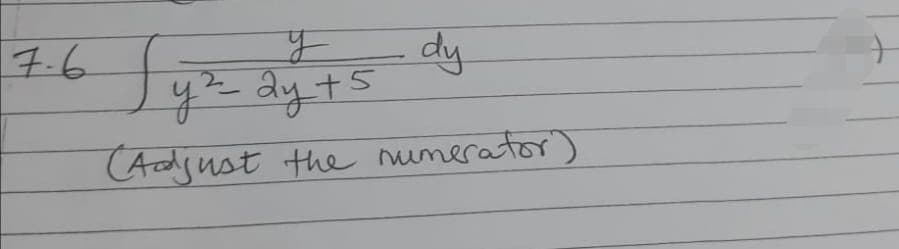 7.6 ∫ y / (y² - 2y + 5) dy
(Adjust the numerator)
)